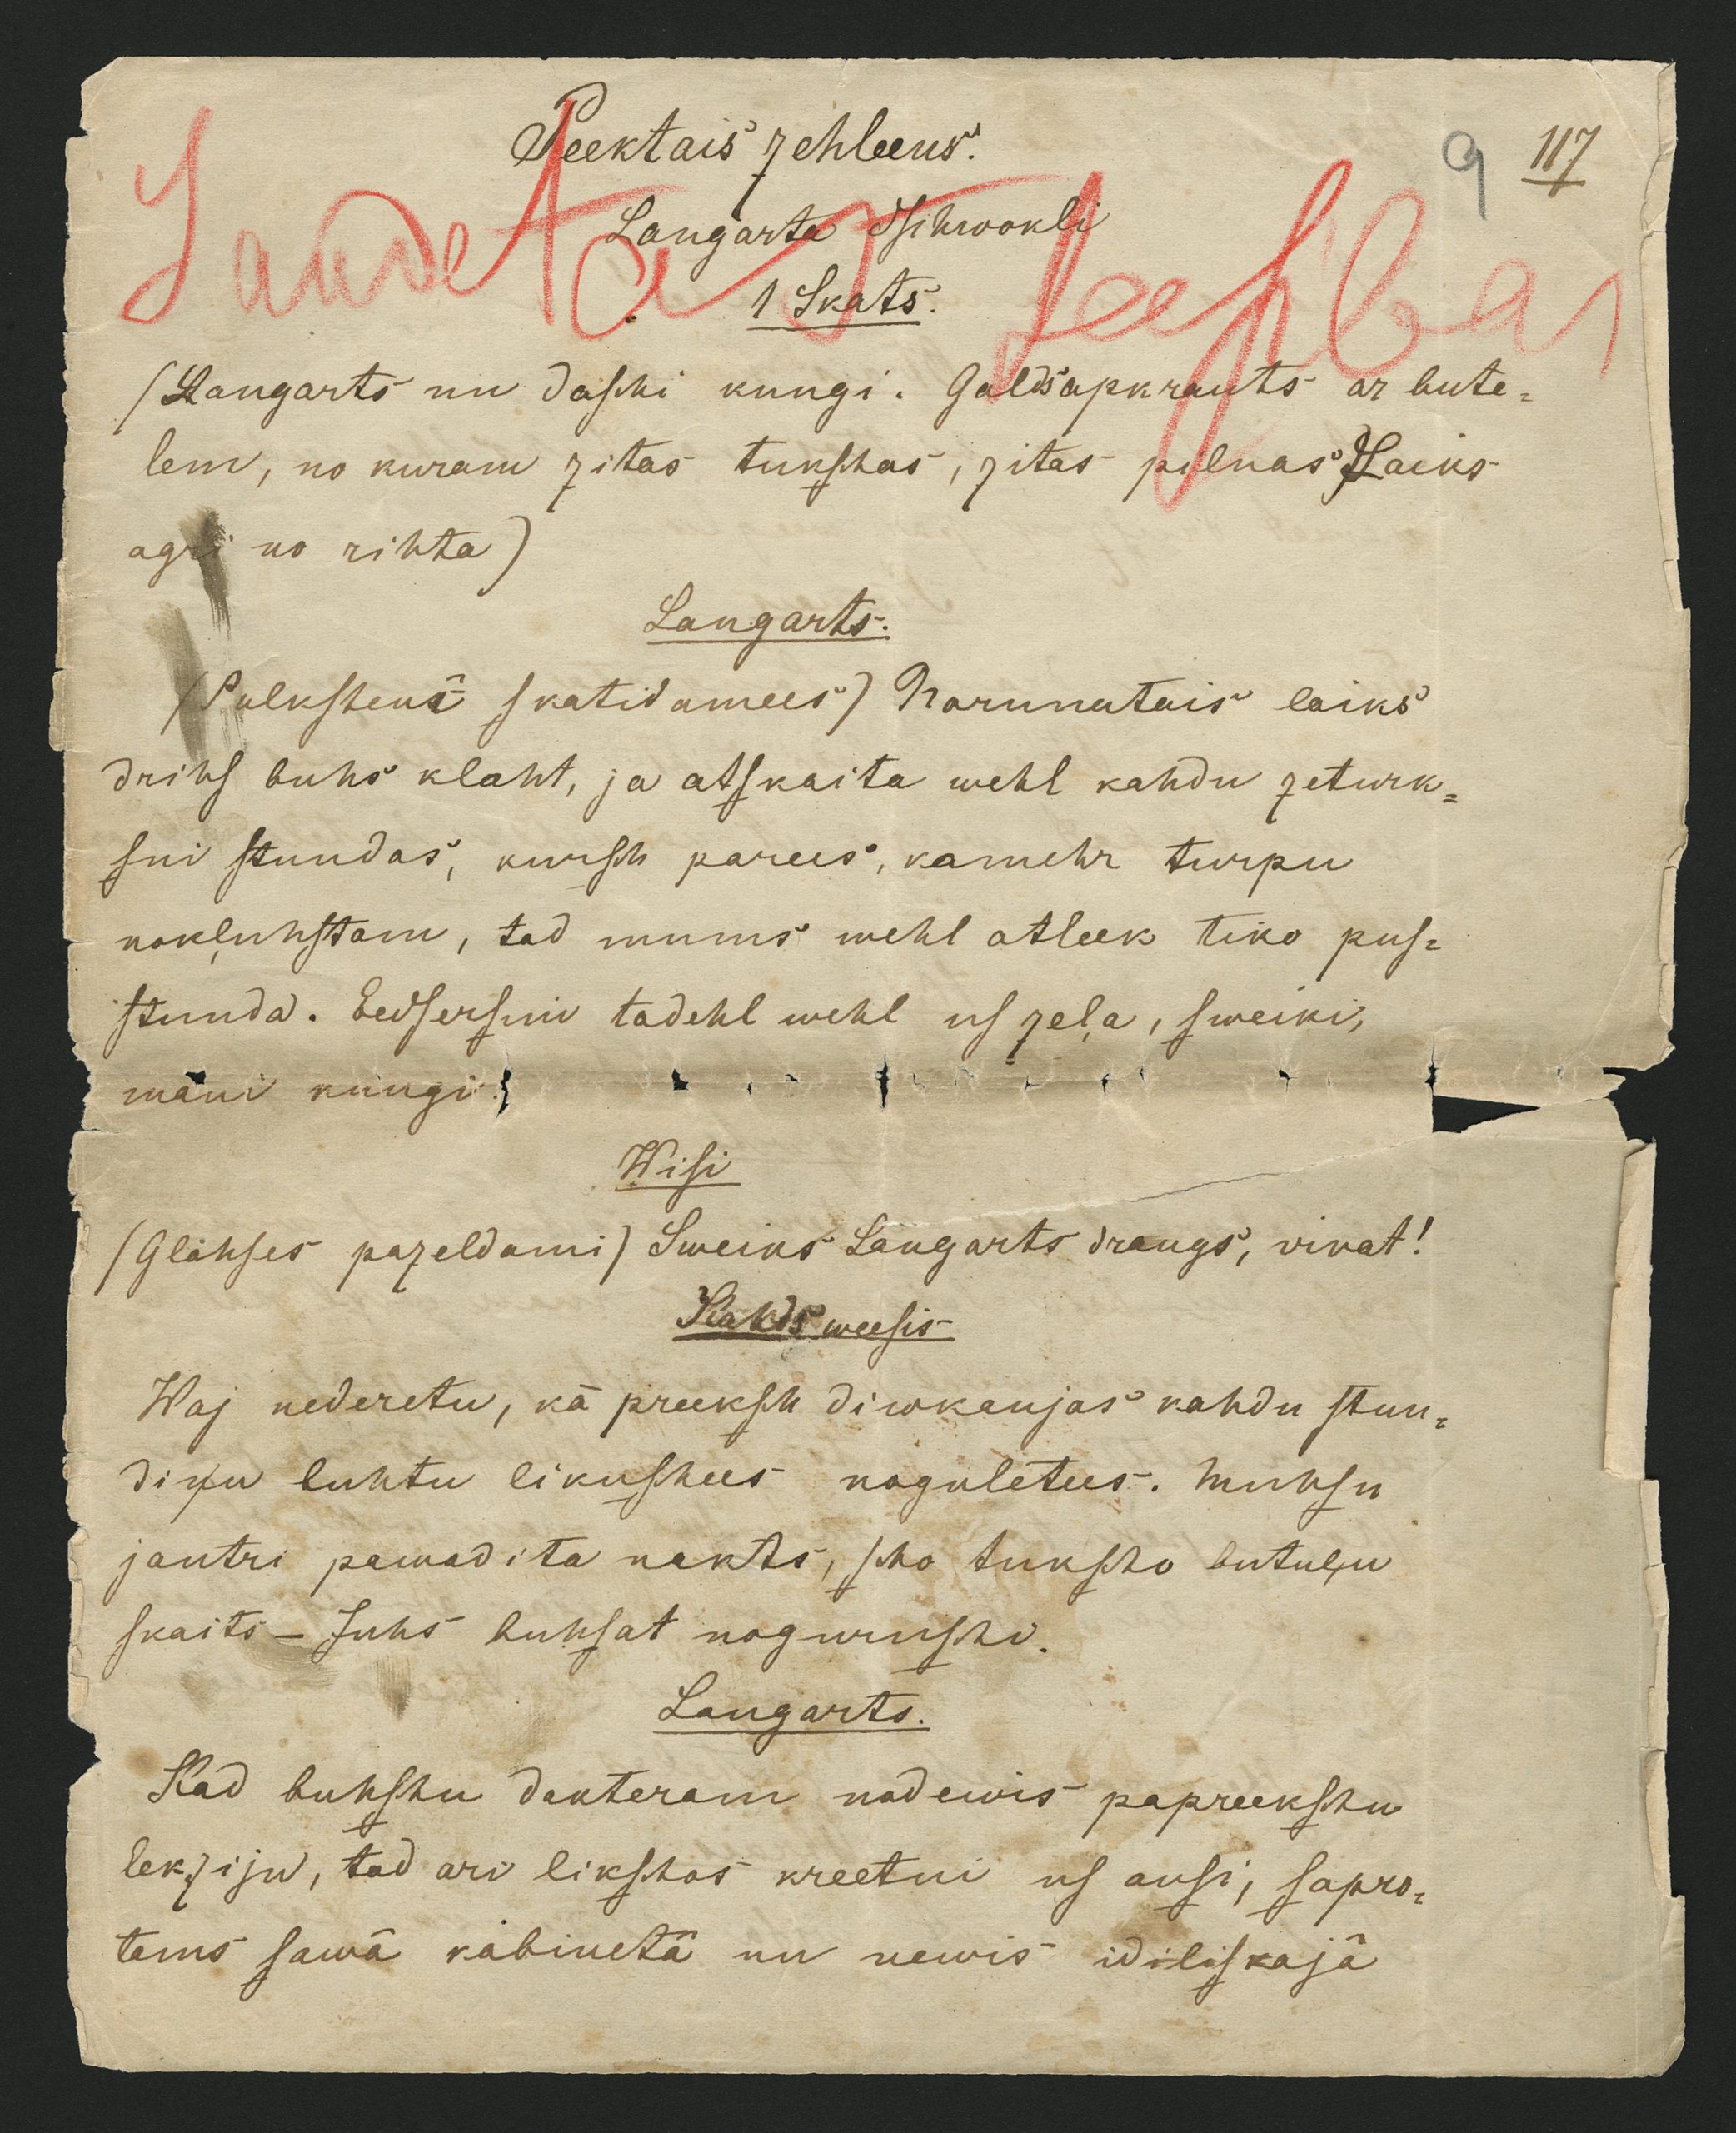 Peektais zehleens.
9 117
Langarta dſihwokli
1 Skats.
(Langarts un daſchi kungi. Galds apkrauts ar bute=
lem, no kuram zitas tukſchas, zitas pilnas Laiks
agri no rihta)
Langarts.
(Pulkstenî ſkatidamees) Norunatais laiks
drihſ buhs klaht, ja atſkaita wehl kahdu zeturk=
sni ſtundas, kurſch parees, kamehr turpu
nokļuhſtam, tad mums wehl atleek tiko puſ=
ſtunda. Eedsersim tadehl wehl uſ zeļa, ſweiki,
mani kungi!
Wiſi
(Glahſes pazeldami) Sweiks Langarts draugs, vivat!
Kahds weeſis
Waj nederetu, kā preekſch diwkaujas kahdu ſtun=
diņu buhtu likuſchees noguletees. Muhſu
jautri pawadita nakts, ſcho tukſcho butuļu
ſkaits – Juhs buhſat noguruſchi.
Langarts.
Kad buhſchu dakteram nodewis papreekſchu
lekziju, tad ari likſchos kreetni uſ auſi, ſapro=
tams ſawâ kabinetâ un newis idiliſkajâ